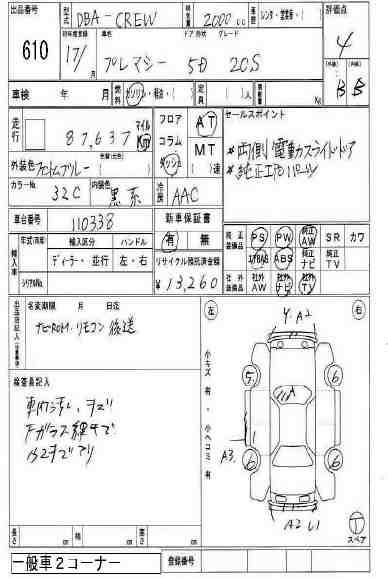 出品番号 610
型式 DBA-CREW 排気量 2000 cc 車歴 レンタ・営業他・( )
評価点 4
初年度登録 17/ 車名 プレマシー ドア 形状 5D グレード 20S
(外装) B (内装) B
車検 年 月 燃料 ガソリン・軽油・( ) 定員 人 積載量 kg
走行 87,637 マイル Km
フロア コラム ダッシュ AT MT ( )速
セールスポイント
*両側電動スライドドア
*純正エアロパーツ
外装色 ファントムブルー 色替(元色)
カラーNo. 32C 内装色 黒系 冷房 AAC
車台番号 110338 新車保証書 有・無
輸入車 年式(西暦) 輸入区分 ハンドル
ディーラー・並行 左・右
シリアルNo.
リサイクル預託済金額 ¥13,260
純正装備品 PS PW 純正AW SR カワ
エアB ABS 純正ナビ 純正TV
社外装備品 社外AW 社外ナビ 社外TV
出品店記入(注意事項) 名変期限 月 日迄
ナビROM・リモコン 後送
検査員記入
車内汚し、キズ
Fガラス
キズアリ
左 右
小キズ 有・小ヘコミ 有
A2
A
5 6
A3
6 6
A2 U1
T スペア
長さ cm 幅 cm 高さ cm
一般車2コーナー 登録番号